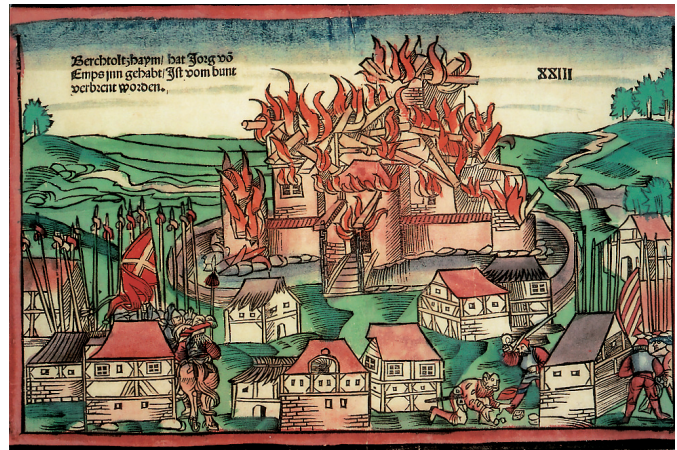 Berchtoltzhaym/ hat Jorg vō
Emps jnn gehabt/ Ist vom bunt
verbrent worden.
XXIII